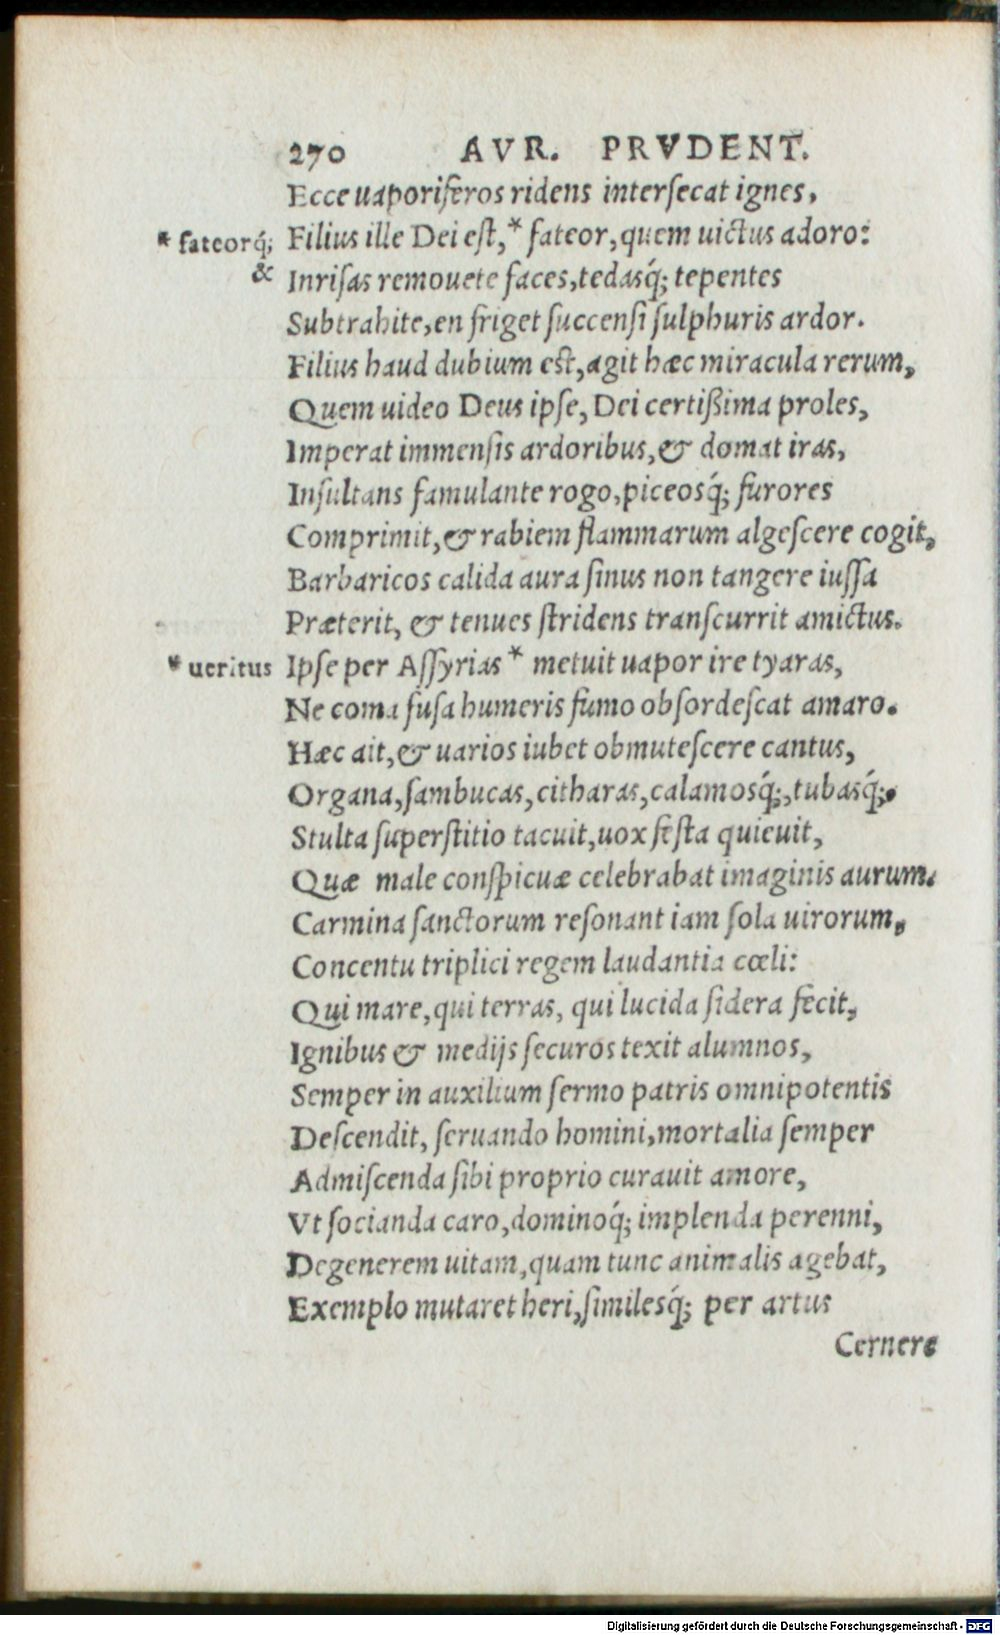 270 AVR. PRVDENT.
Ecce uaporiferos ridens interſecat ignes,
* fateorq́; Filius ille Dei eſt,* fateor,quem uictus adoro:
& Inriſas remouete faces,tedasq́; tepentes
Subtrahite,en friget ſuccenſi ſulphuris ardor.
Filius haud dubium eſt,agit hæc miracula rerum,
Quem uideo Deus ipſe, Dei certißima proles,
Imperat immenſis ardoribus,& domat iras,
Inſultans famulante rogo,piceosq́; furores
Comprimit,& rabiem flammarum algeſcere cogit,
Barbaricos calida aura ſinus non tangere iuſſa
Præterit, & tenues ſtridens tranſcurrit amictus.
* ueritus Ipſe per Aſſyrias * metuit uapor ire tyaras,
Ne coma fuſa humeris fumo obſordeſcat amaro.
Hæc ait,& uarios iubet obmuteſcere cantus,
Organa,ſambucas,citharas,calamosq́;,tubasq́;.
Stulta ſuperſtitio tacuit,uox feſta quieuit,
Quæ male conſpicuæ celebrabat imaginis aurum.
Carmina ſanctorum reſonant iam ſola uirorum,
Concentu triplici regem laudantia cœli:
Qui mare,qui terras, qui lucida ſidera fecit,
Ignibus & medijs ſecuros texit alumnos,
Semper in auxilium ſermo patris omnipotentis
Deſcendit, ſeruando homini,mortalia ſemper
Admiſcenda ſibi proprio curauit amore,
Vt ſocianda caro,dominoq́; implenda perenni,
Degenerem uitam,quam tunc animalis agebat,
Exemplo mutaret heri,ſimilesq́; per artus
Cernere
Digitalisierung gefördert durch die Deutsche Forschungsgemeinschaft - DFG